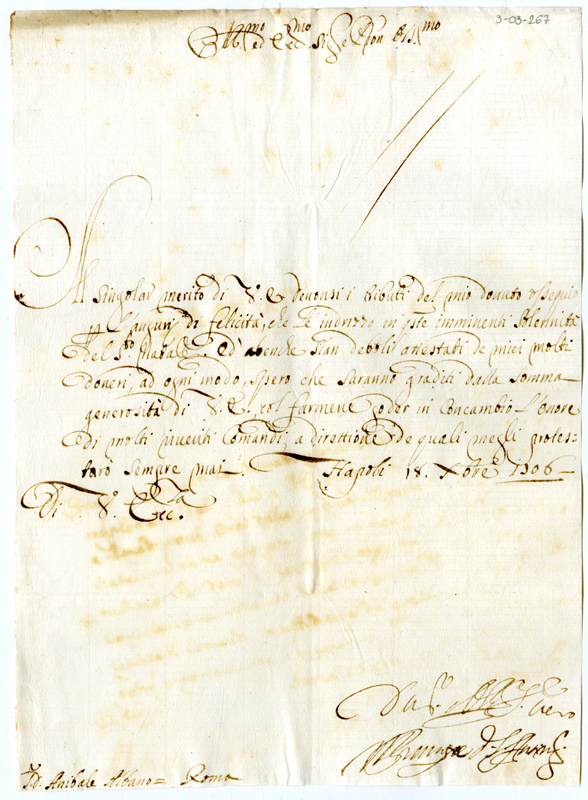 3-03-267
Ill.mo ed Ecc.mo Sig.re
Al singolar merito di V. E. devonsi i tributi del mio dovuto ossequio
gl'augurij di felicità, che Le indrizzo in q.ste imminenti Solennità
del S.to Natale. Ed abenche sian deboli attestati de miei molti
doveri, ad ogni modo, spero che saranno graditi dalla somma
generosità di V. E. col farmene goder in Concambio l'onore
di molti suoi Comandi, a direttione de quali megli protes=
taro sempre mai. Napoli 18. Xbre 1706
Di V. E.za
D. Anibale Albano = Roma